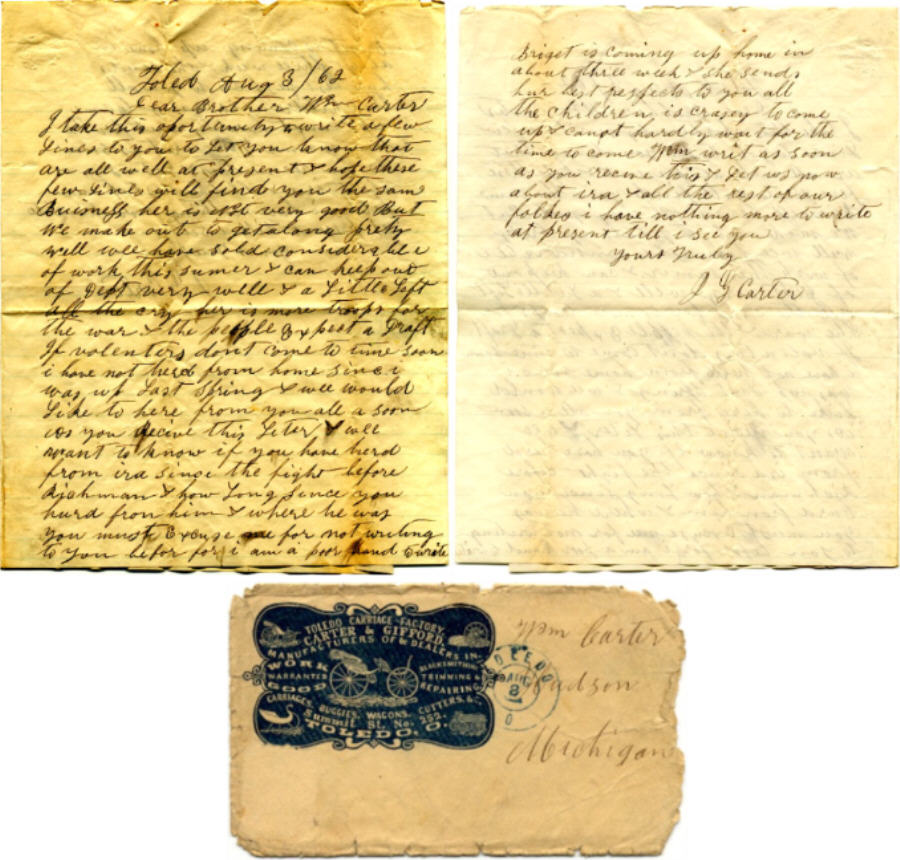 Toled Aug 3/62
Dear Brother Wm Carter
I take this oportunity to write a few
Lines to you to Let you know that
are all well at present & hope these
few Lines will find you the sam
Buisness her is not very good But
We make out to get along prety
well wee have sold considerable
of work this sumer & can keep out
of Dept very well & a Little Left
all the cry her is more troops for
the war & the people Expect a Draft
If volenters dont come to time soon
i have not herd from home since i
was up Last Spring & wee would
Like to here from you all a soon
as you Recive this Leter & wee
want to know if you have herd
from ira since the fight before
Richman & how Long since you
hurd fron him & where he was
you must Excuse me for not writing
to you befor for i am a poor hand to write
Briget is coming up home in
about three week & she sends
hur best respects to you all
the children is crasey to come
up & canot hardly wait for the
time to come Wm writ as soon
as you recive this & Let us now
about ira & all the rest of our
folkes i have nothing more to write
at present till i see you
Yours Truly
J G Carter
TOLEDO CARRIAGE FACTORY.
CARTER & GIFFORD,
MANUFACTURERS OF & DEALERS IN
WORK
WARRANTED
GOOD
BLACKSMITHING
TRIMMING &
REPAIRING
CARRIAGES, BUGGIES, WAGONS, CUTTERS, &c
Summit St. No. 252.
TOLEDO, O.
TOLEDO
AUG
8
O
Wm Carter
Hudson
Michigan